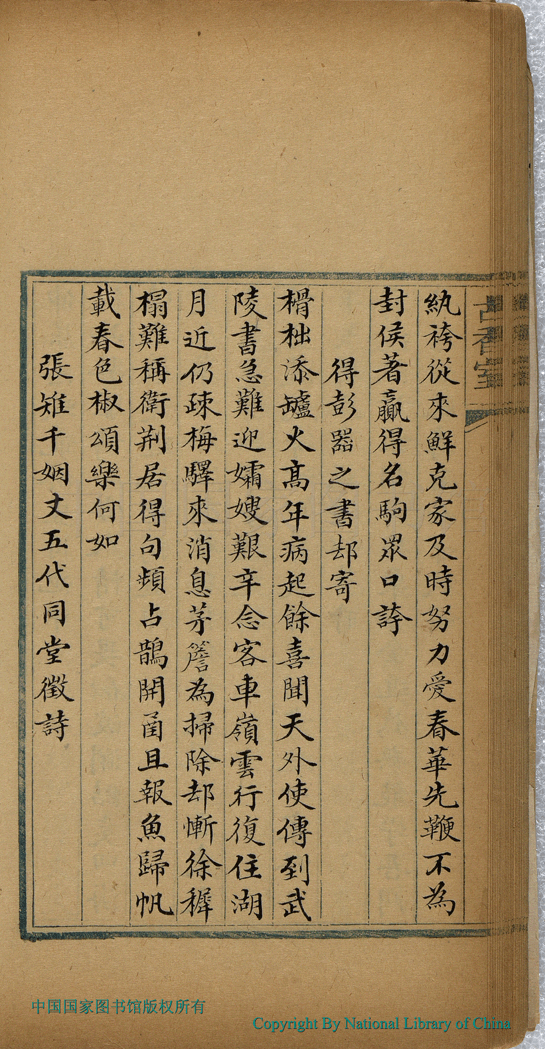 紈袴從來鮮克家及時努力愛春華先鞭不為
封侯著贏得名駒眾口誇
得彭器之書却寄
榾柮添罏火高年病起餘喜聞天外使傳到武
陵書急難迎孀嫂艱辛念客車嶺雲行復住湖
月近仍疎梅驛來消息茅簷為掃除却慚徐穉
榻難稱衛荆居得句頻占鵲開函且報魚歸帆
載春色椒頌樂何如
張雉千姻丈五代同堂徵詩
中国国家图书馆版权所有
Copyright By National Library of China